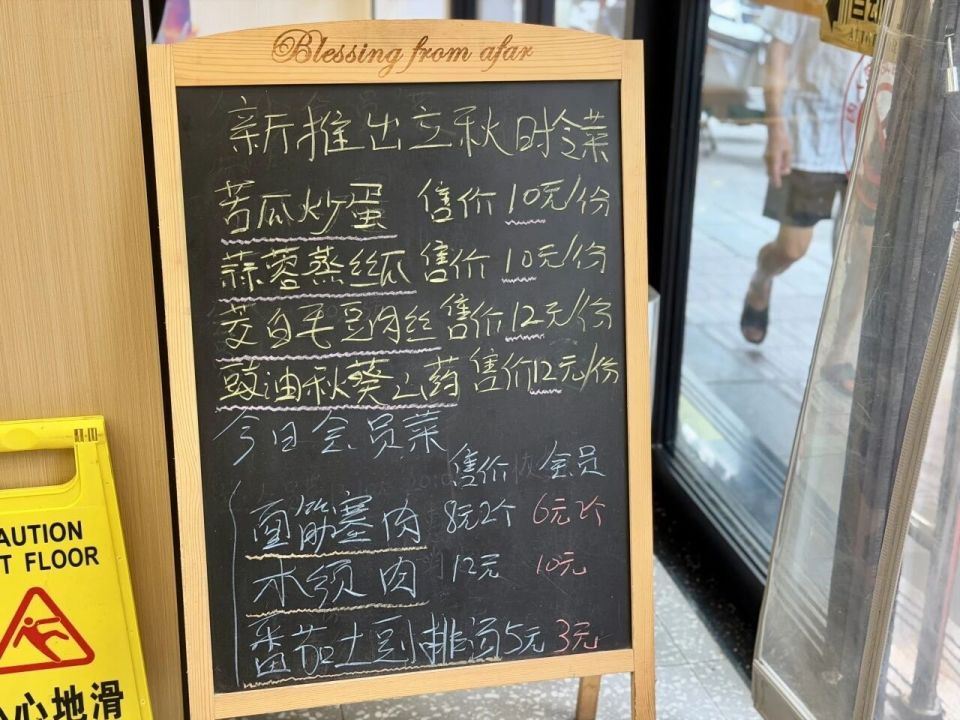 Blessing from afar
新推出立秋时令菜
苦瓜炒蛋 售价10元/份
蒜蓉蒸丝瓜 售价10元/份
茭白毛豆肉丝 售价12元/份
豉油秋葵山药 售价12元/份
今日会员菜
售价 会员
面筋塞肉 8元2个 6元2个
木须肉 12元 10元
番茄土豆排汤 5元 3元
CAUTION
T FLOOR
心地滑